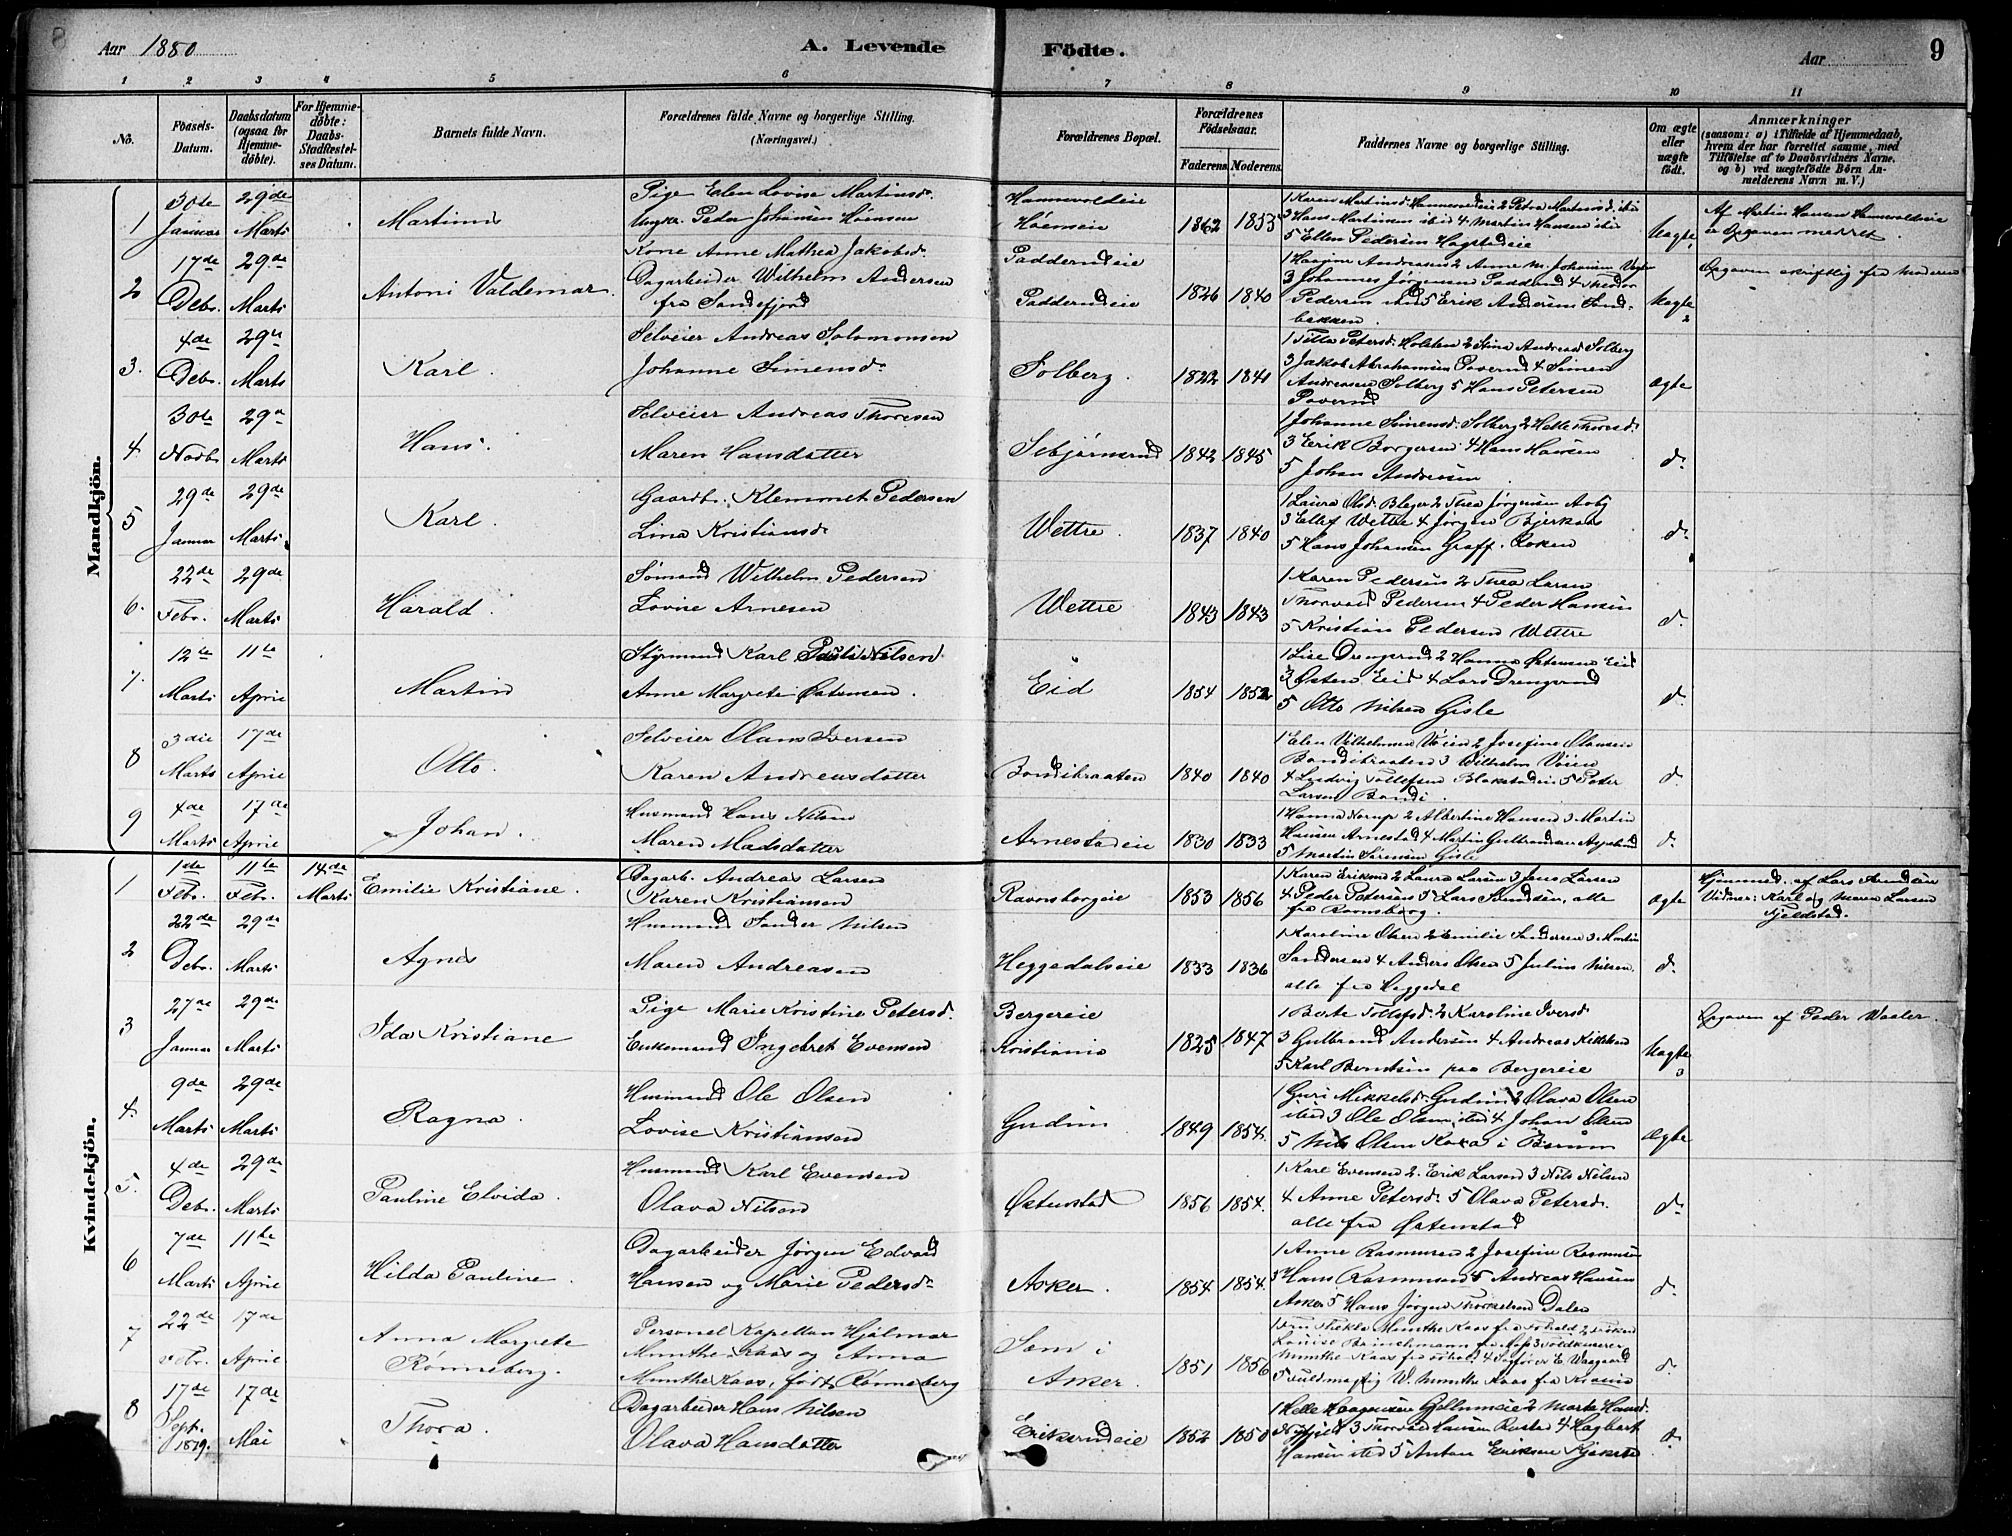 8
Aar 1880
A. Levende Födte.
Aar
9
1 2 3 4 5 6 7 8 9 10 11
No.
Fødsels-Datum.
Daabsdatum (ogsaa for Hjemme-döbte).
For Hjemme-döbte: Daabs-Stadfæstel-ses Datum.
Barnets fulde Navn.
Forældrenes fulde Navne og borgerlige Stilling. (Næringsvei.)
Forældrenes Bopæl.
Forældrenes Födselsaar.
Faderens. Moderens.
Faddernes Navne og borgerlige Stilling.
Om ægte eller uægte födt.
Anmærkninger
(saasom: a) i Tilfælde af Hjemmedaab, hvem der har forrettet samme, med Tilföielse af to Daabsvidners Navne. og b) ved uægtefödte Börn An-melderens Navn m. V.)
Mandkjön.
1 30te Januar 29de Marts Martinus
Pige Elen Lovise Martinsd.
Ungk. Peder Johansen Hansen
Hannevoldeie
Høeneie 1862 1853
1 Karen Martinsd. Hannevoldeie 2 Petra Martinsd. ibid
3 Hans Martinsen ibid 4 Martin Hansen ibid
5 Ellen Pedersen Hogstadeie
Uagte 1
Af Martin Hansen Hannevoldeie
er Opgaven meddelt
2 17de Debr. 29de Marts Antoni Valdemar
Kone Anne Mathea Jakobsd.
Dagarbeider Wilhelm Andersen
fra Sandefjord
Padderndeie
Padderndeie 1826 1840
1 Haagine Andreasen 2 Anne M. Johansen
3 Johannes Jørgensen Paddernd 4 Theodor
Pedersen ibid 5 Erik Andersen Sand-
bakken
Uagte 2
Opgaven skriftlig fra Moderen
3. 4de Debr. 29de Marts Karl.
Selveier Andreas Solomonsen
Johanne Simensd.
Solberg. 1822 1841
1 Petersd. Holsten 2 Stina Andreasd Solberg
3 Jakob Abrahamsen Poverud 4 Simen
Andreasen Solberg 5 Hans Petersen
Poverud
Ægte
4. 30te Novbr. 29de Marts Hans.
Selveier Andreas Thoresen
Maren Hansdatter
Sebjørnsrud 1842 1845
1 Johanne Simensd. Solberg 2 Helle Thoresd.
3 Eerik Borgersen 4 Hans Hansen
5 Johan Andresen
d.
5 29de Januar 29de Marts. Karl.
Gaardbr. Klemmet Pedersen
Lina Kristiansd.
Wettre. 1837 1840
1 Laura Olsd. Bleger 2 Thea Jørgensen Aoby
3 Ellef Wettre 4 Jørgen Bjerkaas
5 Hans Johansen Graff. Røken
d.
6. 22de Febr. 29de Marts Harald.
Sømand Wilhelm Pedersen
Lovise Arnesen
Wettre 1843 1843
1 Karen Pedersen 2 Thea Larsen
Thorvald Pedersen 4 Peder Hansen
5 Kristian Pedersen Wettre
d.
7. 12te Marts 11te April Martin
Styrmand Karl Nilsen
Anne Margrete Østensen.
Eid 1854 1852
1 Lise Drengsrud 2 Hanna Østensen Eid
3 Østen Eid 4 Lars Drengsrud
5 Otto Nilsen Gisle
d.
8 3die Marts 17de April Otto.
Selveier Olaus Iversen
Karen Andreasdatter
Bondibraaten 1840 1840
1 Elen Vilhelmsen Vøien 2 Josefine Olausen
Bondibraaten 3 Wilhelm Vøien
4 Ludvig Tollefsen Blakstadeie 5 Peter
Larsen Bondi.
d.
9 4de Marts 17de April Johan.
Husmand Hans Nilsen
Maren Madsdatter
Arnestadeie 1830 1833
1 Hanna Norup 2 Albertine Hansen 3 Martin
Hansen Arnestad 4 Martin Gulbrandsen
5 Martin Sørensen Gisle
d.
Kvindekjön.
1 1ste Febr. 11te Febr. 14de Marts Emilie Kristiane.
Dagarb. Andreas Larsen
Karen Kristiansen
Ravnsborgeie 1853 1856
1 Karen Eriksen 2 Laura Larsen 3 Jens Larsen
4 Peder Petersen 5 Lars Amundsen, alle
fra Ravnsborg.
Ægte
Hjemmed. af Lars Amundsen
Vidner: Karl og Maren Larsen
Fjeldstad.
2 22de Debr. 29de Marts Agnes
Husmand Sander Nilsen
Maren Andreasen
Heggedalseie 1833 1836
1 Karoline Olsen 2 Emilie Sandersen 3 Martin
Sandersen 4 Anders Olsen 5 Julius Nilsen.
alle fra Heggedal
d.
3 27de Januar 29de Marts Ida Kristiane
Pige Marie Kristine Petersd.
Enkemand Ingebret Evensen
Bergereie
Kristiania 1825 1847
1 Berte Tollefsd. 2 Karoline Iversd
3 Gulbrand Andersen 4 Andreas Killelsen
5 Karl Berntsen paa Bergereie
Uagte 3
Opgaven af Peder Waaler.
4. 9de Marts 29de Marts Ragna.
Husmand Ole Olsen
Lovise Kristiansen
Gudim 1849 1854.
1 Guri Mikkelsd. Gudim 2 Olava Olsen
isted 3 Ole Olsen isted 4 Johan Olsen
5 Nils Olsen Kaxa i Bærum
Ægte
5. 4de Debr. 29de Marts Pauline Elvida.
Husmand Karl Evensen
Olava Nilsen
Østenstad 1856 1854.
1 Karl Evensen 2. Erik Larsen 3 Nils Nilsen
4 Anne Petersd. 5 Olava Petersd.
alle fra Østenstad
d.
6 7de Marts 11te April Hilda Pauline.
Dagarbeider Jørgen Edvard
Hansen og Marie Pedersd.
Asker. 1854 1854.
1 Anne Rasmussen 2 Josefine Rasmussen
3 Hans Rasmussen 4 Andreas Hansen
Asker 5 Hans Jørgen Thorkelsen Dalen
d.
7 22de Febr. 17de April Anna Margrete Rønneberg.
Personel Kapellan Hjalmar
Munthe-Kaas og Anna
Munthe Kaas, født Rønneberg
Sem i
Asker. 1851 1856
1 Fru Thekla Munthe Kaas fra 2 Frøken
Louise Brinchmann fra Moss 3 Toldkasserer
Munthe Kaas fra 4 Sagfører E. Waagaard
5 Fuldmægtig W. Munthe Kaas fra Krania
d.
8 17de Sept. 1879. 17de Mai Thora.
Dagarbeider Hans Nilsen
Olava Hansdatter
Eriksrudeie 1852 1850
1 Helle Haagensen Gellumeie 2 Marte Hansd.
3 Thorvald Hansen Rustad 4 Hagbart
Hansen isted 5 Anton Eriksen
d.